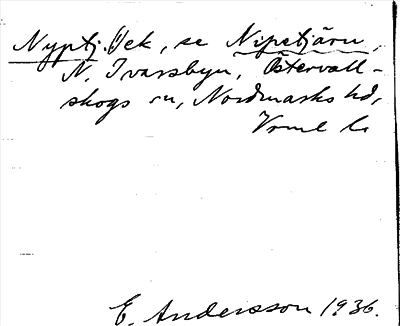 Nyptj. Öek, se Nipetjärn,
N. Ivarsbyn, Östervall-
skogs sn, Nordmarks hd,
Vrml l.
E. Andersson 1936.